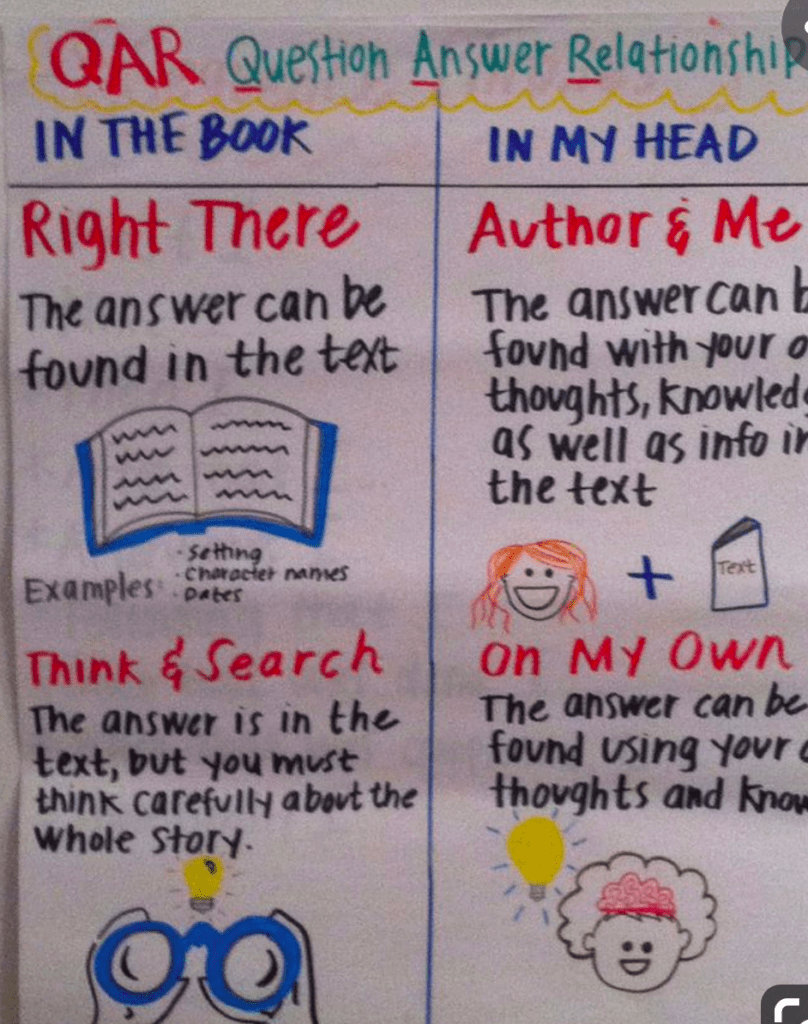 QAR Question Answer Relationship
IN THE BOOK
Right There
The answer can be
found in the text
Examples:
· Setting
· Character names
· Dates
Think & Search
The answer is in the
text, but you must
think carefully about the
whole story.
IN MY HEAD
Author & Me
The answer can
found with your
thoughts,
as well as info
the text
Text
+
On My Own
The answer can be
found using your
thoughts and